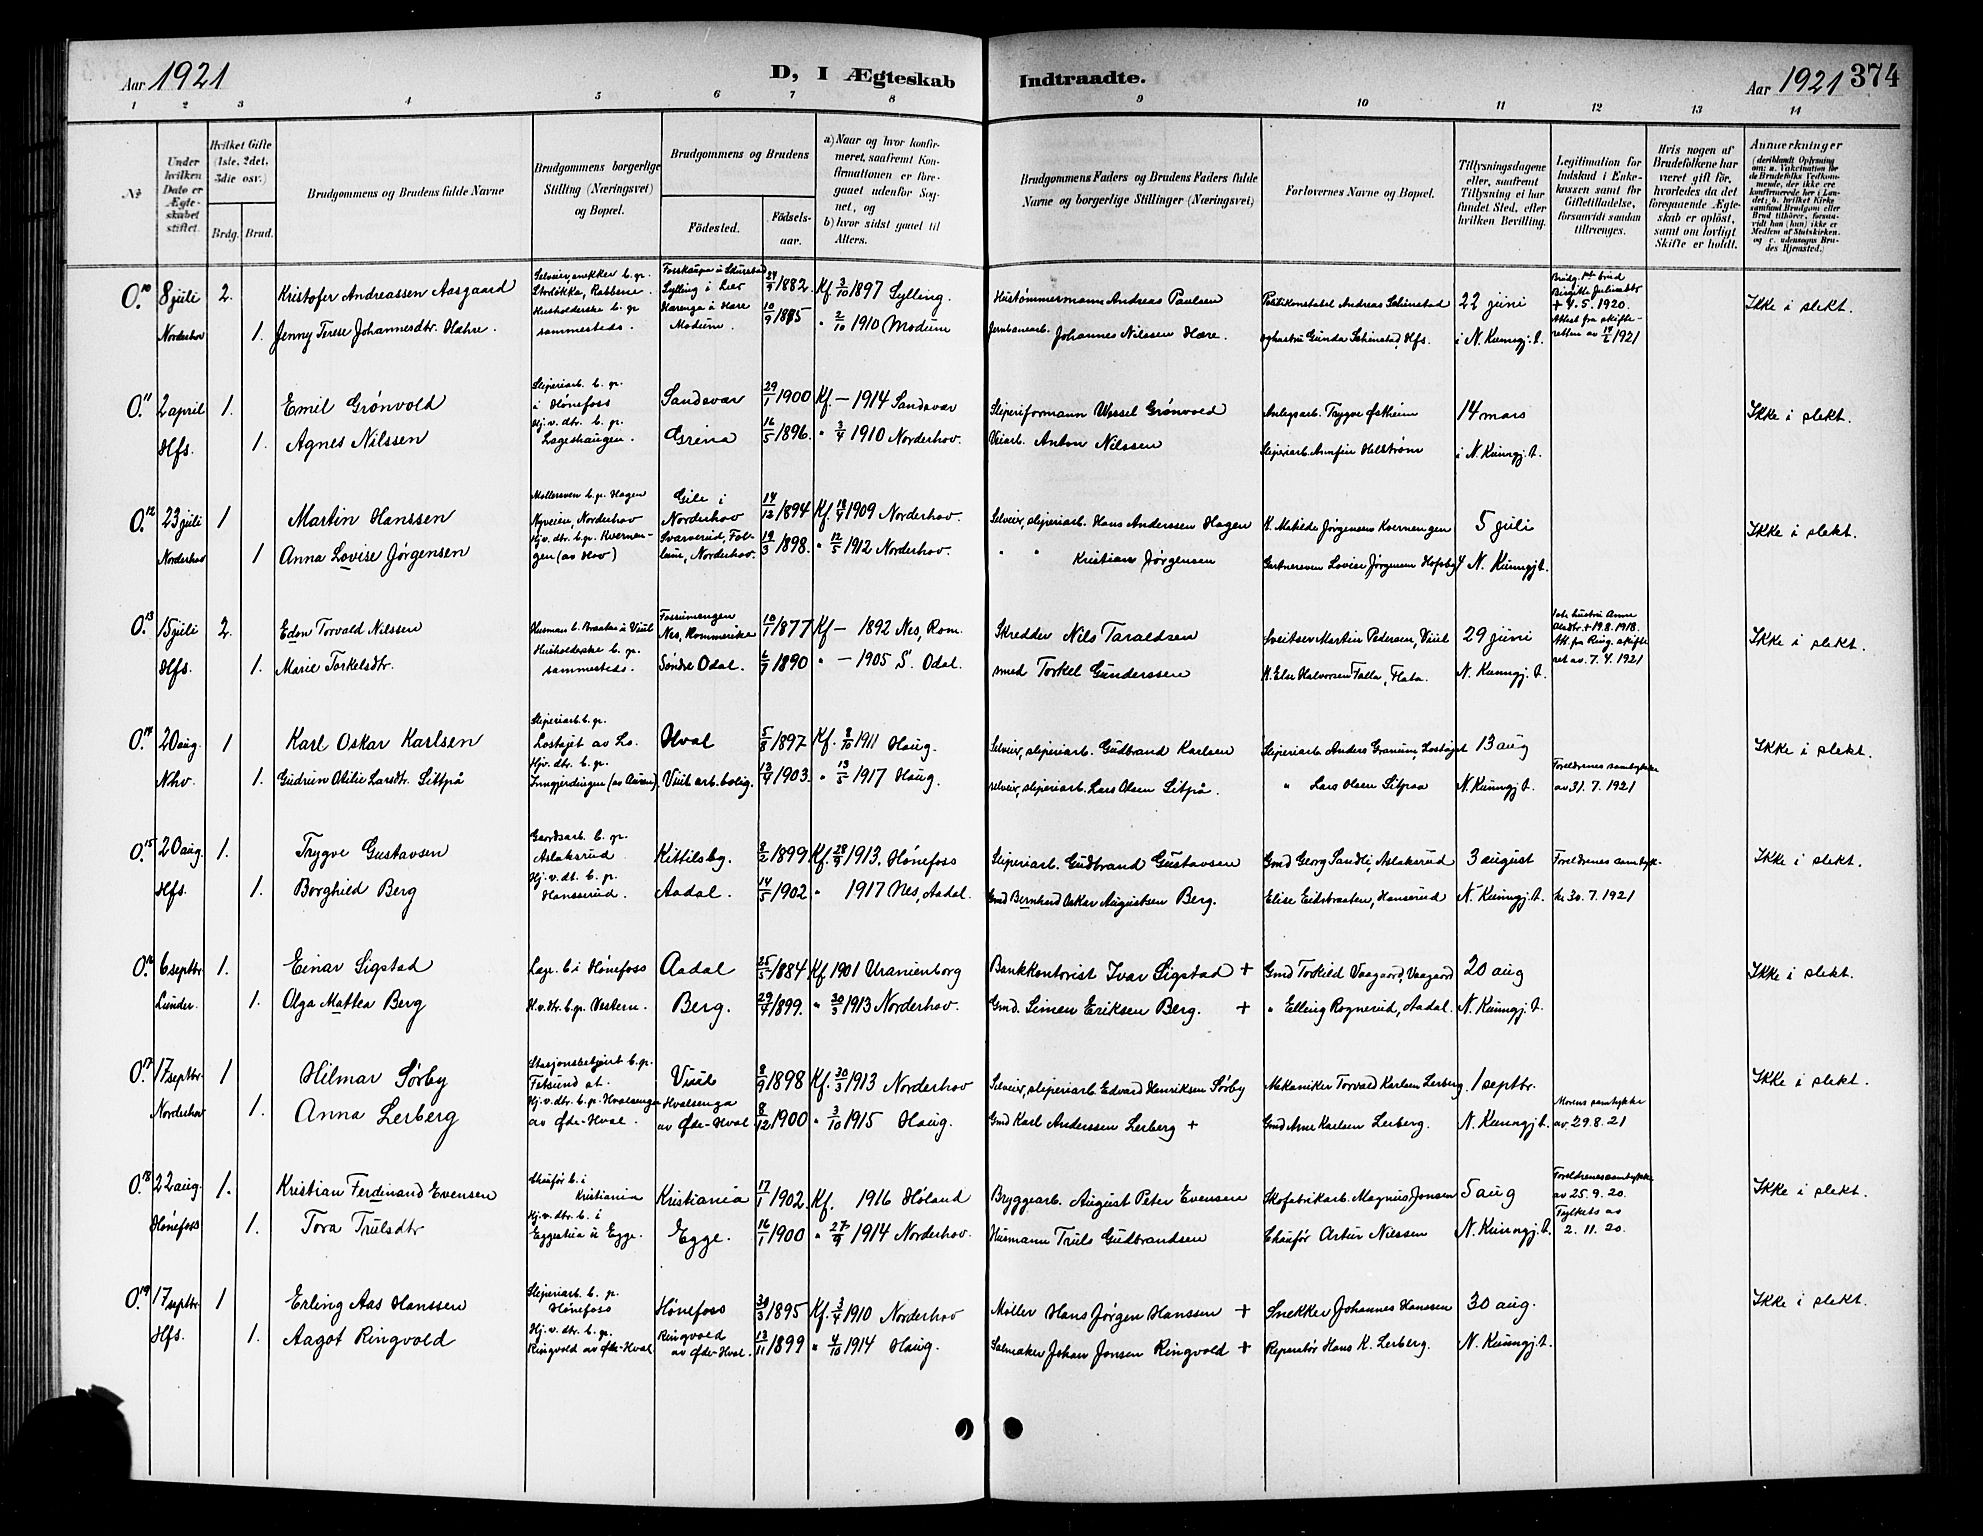 Aar 1921
D, I Ægteskab
Indtraadte.
Aar 1921 374
1 2 3 4 5 6 7 8 9 10 11 12 13 14
No
Under hvilken Dato er Ægteskabet stiftet.
Hvilket Gifte (1ste, 2det, 3die osv.)
Brdg. Brud.
Brudgommens og Brudens fulde Navne
Brudgommens borgerlige Stilling (Næringsvei) og Bopæl.
Brudgommens og Brudens
Födested.
Födselsaar.
a) Naar og hvor konfirmeret, saafremt Konfirmationen er foregaaet udenfor Sognet, og
b) hvor sidst gaaet til Alters.
Brudgommens Faders og Brudens Faders fulde Navne og borgerlige Stillinger (Næringsvei)
Forlovernes Navne og Bopæl.
Tillysningsdagene eller, saafremt Tillysning ei har fundet Sted, efter hvilken Bevilling.
Legitimation for Indskud i Enkekassen samt for Giftetilladelse, forsaavidt saadan tiltrænges.
Hvis nogen af Brudefolkene har været gift för, hvorledes da det foregaaende Ægteskab er oplöst, samt om lovligt Skifte er holdt.
Anmerkninger
(deriblandt Oplysning om: a. Vakcination for de Brudefolks Vedkommende, der ikke ere konfirmerede her i Landet; b. hvilket Kirkesamfund Brudgom eller Brud tilhörer, forsaavidt han (hun) ikke er Medlem af Statskirken, og c. udensogns Brudes Hjemsted.)
O. 10 8 juli 2. Kristofer Andreassen Aasgaard Sylling i Lier 24/9 1882. Kf 3/10 1897 Sylling. Hustømmermann Andreas Paulsen Politikonstabel Andreas Schinstad 22 juni Ikke i slekt.
Brudg. 1ste brud Birgitte Julinusdtr + 4. 5. 1920. Attest fra skifteretten av 1921
Norderhov 1. Jenny Terese Johannesdtr. Hæhre. Husholderske b. p. sammesteds. Modum. 10/9 1885 " 2/10 1910 Modum Jernbanearb. Johannes Nilssen Hære. og hustru Gunda Schinstad, Hfs. i N. Kunngj. t.
O. 11 2 april 1. Emil Grønvold Sliperiarb. b. p. i Hønefoss Sandsvær 29/1 1900 Kf. — 1914 Sandsvær Sliperiformann Wessel Grønvold Anlegsarb. Trygve Østheim 14 mars Ikke i slekt.
Hfs. 1. Agnes Nilssen Hj. v. dtr. b. p. Lageshaugen. Grina 16/5 1896. " 3/4 1910 Norderhov. Veiarb. Anton Nilssen Sliperiarb. Arnfin Hellstrøm i N. Kunngj. t.
O. 12 23 juli 1 Martin Hanssen Møllersven b. p. Hagen Nyveien, Norderhov Gile i Norderhov 14/12 1894 Kf. 18/4 1909 Norderhov. Selveier, sliperiarb. Hans Anderssen Hagen K. Matilde Jørgensens Kvernengen 5 juli Ikke i slekt.
Norderhov 1 Anna Lovise Jørgensen Hj. v. dtr. b. p. Kvernengen (av Hov) Svarverud, Follum, Norderhov. 19/3 1898. " 12/5 1912 Norderhov. " " Kristian Jørgensen Gartnersven Lovise Jørgensen Hofsby N. Kunngj. t.
O. 13 15 juli 2. Edon Torvald Nilssen Husman b. Braaten u Viul Fossumengen Nes, Rommerike 10/1 1877 Kf — 1892 Nes, Rom. Skredder Nils Taraldsen Martin Pedersen, Viul 29 juni Ikke i slekt.
1ste hustru Anne + 19. 8. 1918. Att. fra Ring. skifteret av 7. 4. 1921
Hfs. 1. Marie Torkelsdtr. Husholderske b. p. sammesteds. Søndre Odal. 6/7 1890 " — 1905 S. Odal. Smed Torkel Gunderssen K. Else Halvorsen Falla, Flata. N. Kunngj. t.
O. 14 20 aug. 1 Karl Oskar Karlsen Sliperiarb. b. p. Lostøjet av Lo. Hval 5/8 1897 Kf. 8/10 1911 Haug. Selveier, sliperiarb. Gudbrand Karlsen Sliperiarb. Anders Granum, Lostøjet 13 aug Ikke i slekt.
Nhv. 1. Gudrun Otilie Larsdtr. Sitpå Hjv. dtr. b. p. Inngjerdingen Viul arb. bolig. 13/4 1903. " 13/5 1917 Haug. selveier, sliperiarb. Lars Olsen Sitpå. " Lars Olsen Sitpaa N. Kunngj. t. Foreldrenes samtykke av 31. 7. 1921
O. 15 20 aug. 1. Trygve Gustavsen Gaardsarb. b. p. Aslaksrud Kittilsby. 8/2 1899 Kf. 28/9 1913. Hønefoss Sliperiarb. Gudbrand Gustavsen Gmd Georg Sandli, Aslaksrud 3 august Foreldrenes samtyk- Ikke i slekt.
Hfs. 1. Borghild Berg Hj. v. dt. b. p. Hanserud. Aadal. 14/5 1902 " 1917 Nes, Aadal. Gmd Bernhard Oskar Augustsen Berg. Elise Eidsbraaten, Hanserud N. Kunngj. t. ke 30. 7. 1921
O. 16 6 septbr. 1. Einar Sigstad Lage. b i Hønefoss Aadal 25/5 1884 Kf 1901 Uranienborg Bankkontorist Ivar Sigstad + Gmd Torkild Vaagaard, Vaagaard 20 aug Ikke i slekt.
Lunder. 1. Olga Mattea Berg H. v. dtr. b. p. Vestern. Berg. 29/7 1899. " 30/3 1913 Norderhov. Gmd. Simen Eriksen Berg. + " Elling Rognerud, Aadal. N. Kunngj. t.
O. 17 17 septbr. 1 Hilmar Sørby Stasjonsbetjent b. p. Fetsund st. Viul 8/9 1898 Kf. 30/3 1913 Norderhov Selveier, sliperiarb. Edvard Henriksen Sørby Mekaniker Torvald Karlsen Lerberg. 1 septbr. Ikke i slekt.
Norderhov 1. Anna Lerberg Hj. v. dtr. b. p. Hvalsenga av Øde-Hval. Hvalsenga av Øde-Hval 8/12 1900 " 3/10 1915 Haug. Gmd Karl Anderssen Lerberg + Gmd Arne Karlsen Lerberg. N. Kunngj. t. Morens samtykke av 29. 8. 21
O. 18 22 aug. 1. Kristian Ferdinand Evensen Chaufør b. i Kristiania Kristiania 17/1 1902. Kf. 1916 Høland Bryggearb. August Peter Evensen Skofabrikarb. Magnus Jonsen 5 aug Foreldrenes samtykke av 25. 9. 20. Ikke i slekt.
Hønefoss 1. Tora Trulsdtr Hj. v. dtr. b. i Eggestua u Egge. Egge. 16/1 1900 " 27/9 1914 Norderhov. Husmann Truls Gudbrandsen Chaufør Artur Nilssen N. Kunngj. t. Fylkets av 2. 11. 20.
O. 19 17 septbr. 1 Erling Aas Hanssen Sliperiarb. b. p. Hønefoss Hønefoss 30/3 1895 Kf. 3/4 1910 Norderhov Møller Hans Jørgen Hanssen + Snekker Johannes Hanssen 30 aug. Ikke i slekt.
Hfs. 1. Aagot Ringvold Hj. v. dtr. b. p. Ringvold av Øde-Hval Ringvold av Øde-Hval. 13/11 1899 " 4/10 1914 Haug. Salmaker Johan Jonsen Ringvold + Reparatør Hans K. Lerberg. N. Kunngj. t.